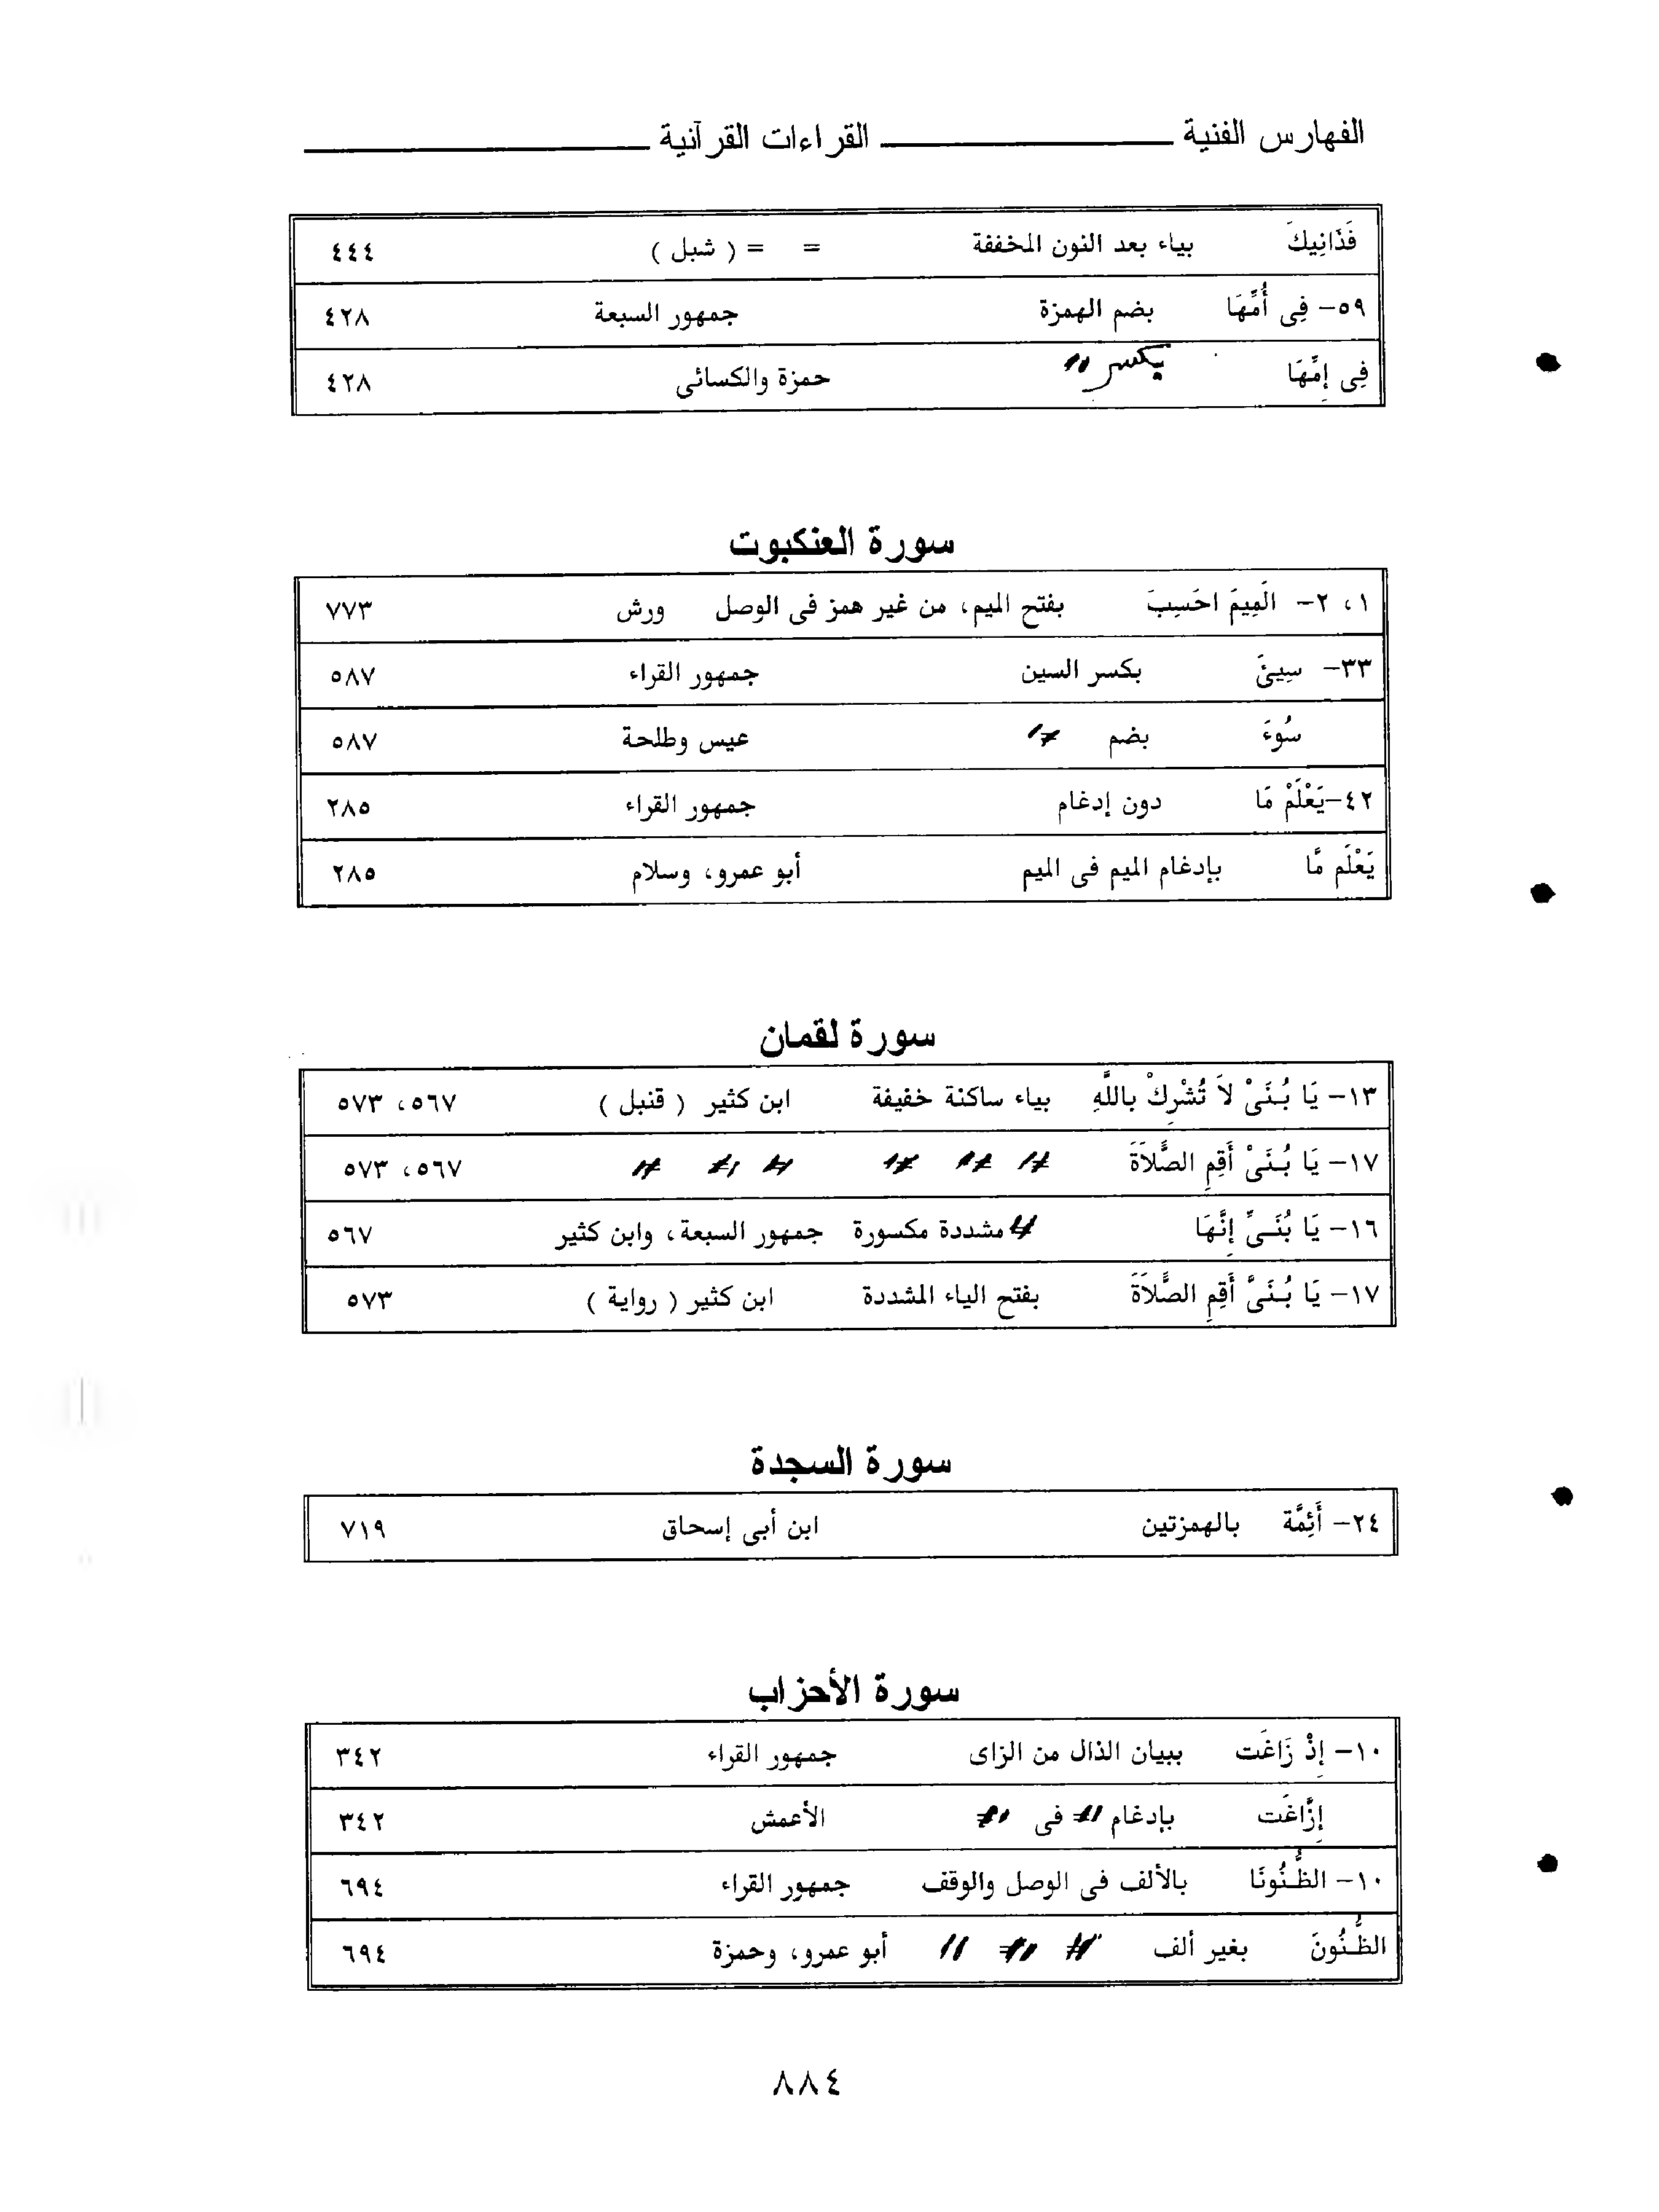 الفهارس الفنية القراءات القرآنية
فَذَانِيكَ بياء بعد النون المخففة = = ( شبل ) ٤٤٤
٥٩- فِى أُمِّهَا بضم الهمزة جمهور السبعة ٤٢٨
فِى إِمِّهَا بكسر // حمزة والكسائى ٤٢٨
سورة العنكبوت
١، ٢- الَمِيمَ احَسِبَ بفتح الميم، من غير همز فى الوصل ورش ٧٧٣
٣٣- سِيئَ بكسر السين جمهور القراء ٥٨٧
سُوءَ بضم // عيس وطلحة ٥٨٧
٤٢-يَعْلَمْ مَا دون إدغام جمهور القراء ٢٨٥
يَعْلَم مَّا بإدغام الميم فى الميم أبو عمرو، وسلام ٢٨٥
سورة لقمان
١٣- يَا بُنَىْ لاَ تُشْرِكْ باللَّهِ بياء ساكنة خفيفة ابن كثير ( قنبل ) ٥٦٧، ٥٧٣
١٧- يَا بُنَىْ أَقِمِ الصَّلاَةَ // // // // // // ٥٦٧، ٥٧٣
١٦- يَا بُنَىِّ إِنَّهَا // مشددة مكسورة جمهور السبعة، وابن كثير ٥٦٧
١٧- يَا بُنَىَّ أَقِمِ الصَّلاَةَ بفتح الياء المشددة ابن كثير ( رواية ) ٥٧٣
سورة السجدة
٢٤- أَئِمَّة بالهمزتين ابن أبى إسحاق ٧١٩
سورة الأحزاب
١٠- إِذْ زَاغَت ببيان الذال من الزاى جمهور القراء ٣٤٢
إِزَّاغَت بإدغام // فى // الأعمش ٣٤٢
١٠- الظُّنُونَا بالألف فى الوصل والوقف جمهور القراء ٦٩٤
الظُّنُونَ بغير ألف // // // أبو عمرو، وحمزة ٦٩٤
٨٨٤